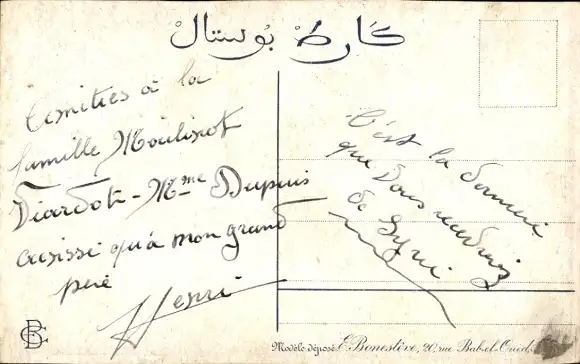 كارط بوسطال
Amitiés à la
famille Moulinot
Viardot - Mme Dupuis
aussi qu'à mon grand
père
Henri
C'est la
que vous
de
BE
Modèle déposé E. Bonestève, 20, rue Bab-el-Oued